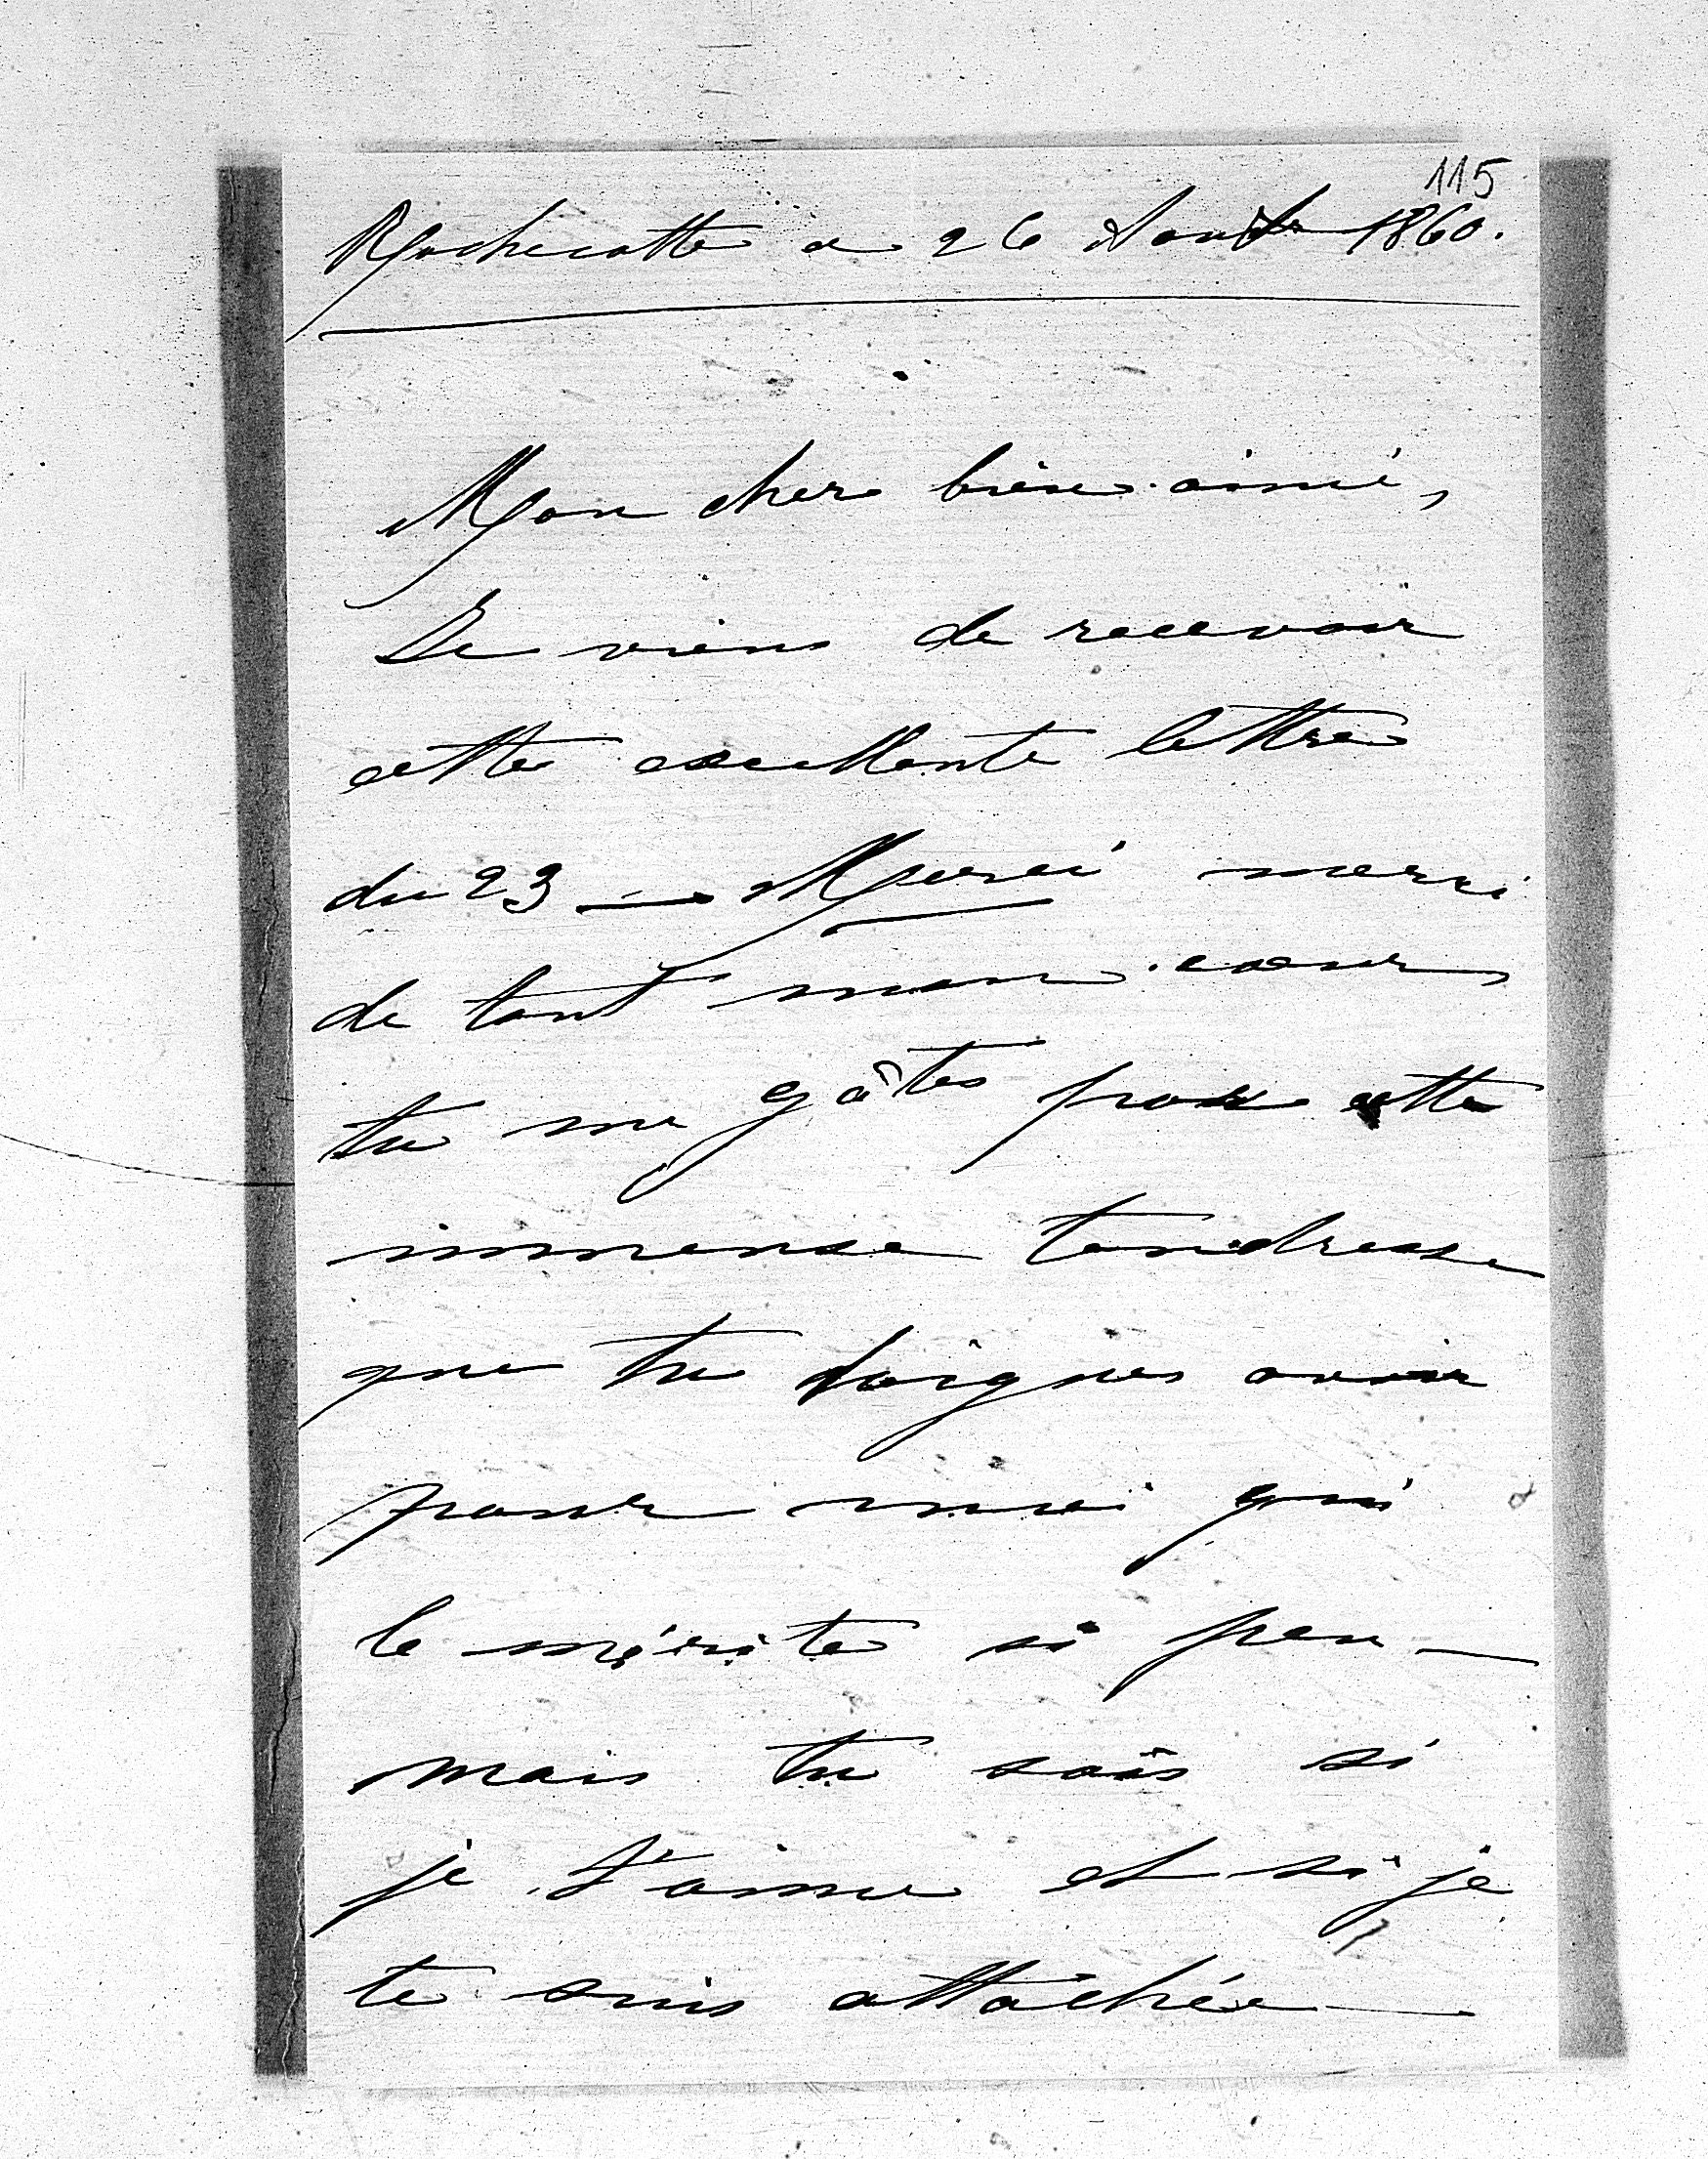 115
Rochecotte a 26 Aout 1860.
Mon cher bien-aimé,
Je viens de recevoir
cette excellente lettre
du 23 — Merci merci
de tout mon cœur,
tu me gâtes par cette
immense tendresse
que tu daignes avoir
pour moi qui
le mérite si peu —
mais tu sais si
je t'aime et si je
te suis attachée —